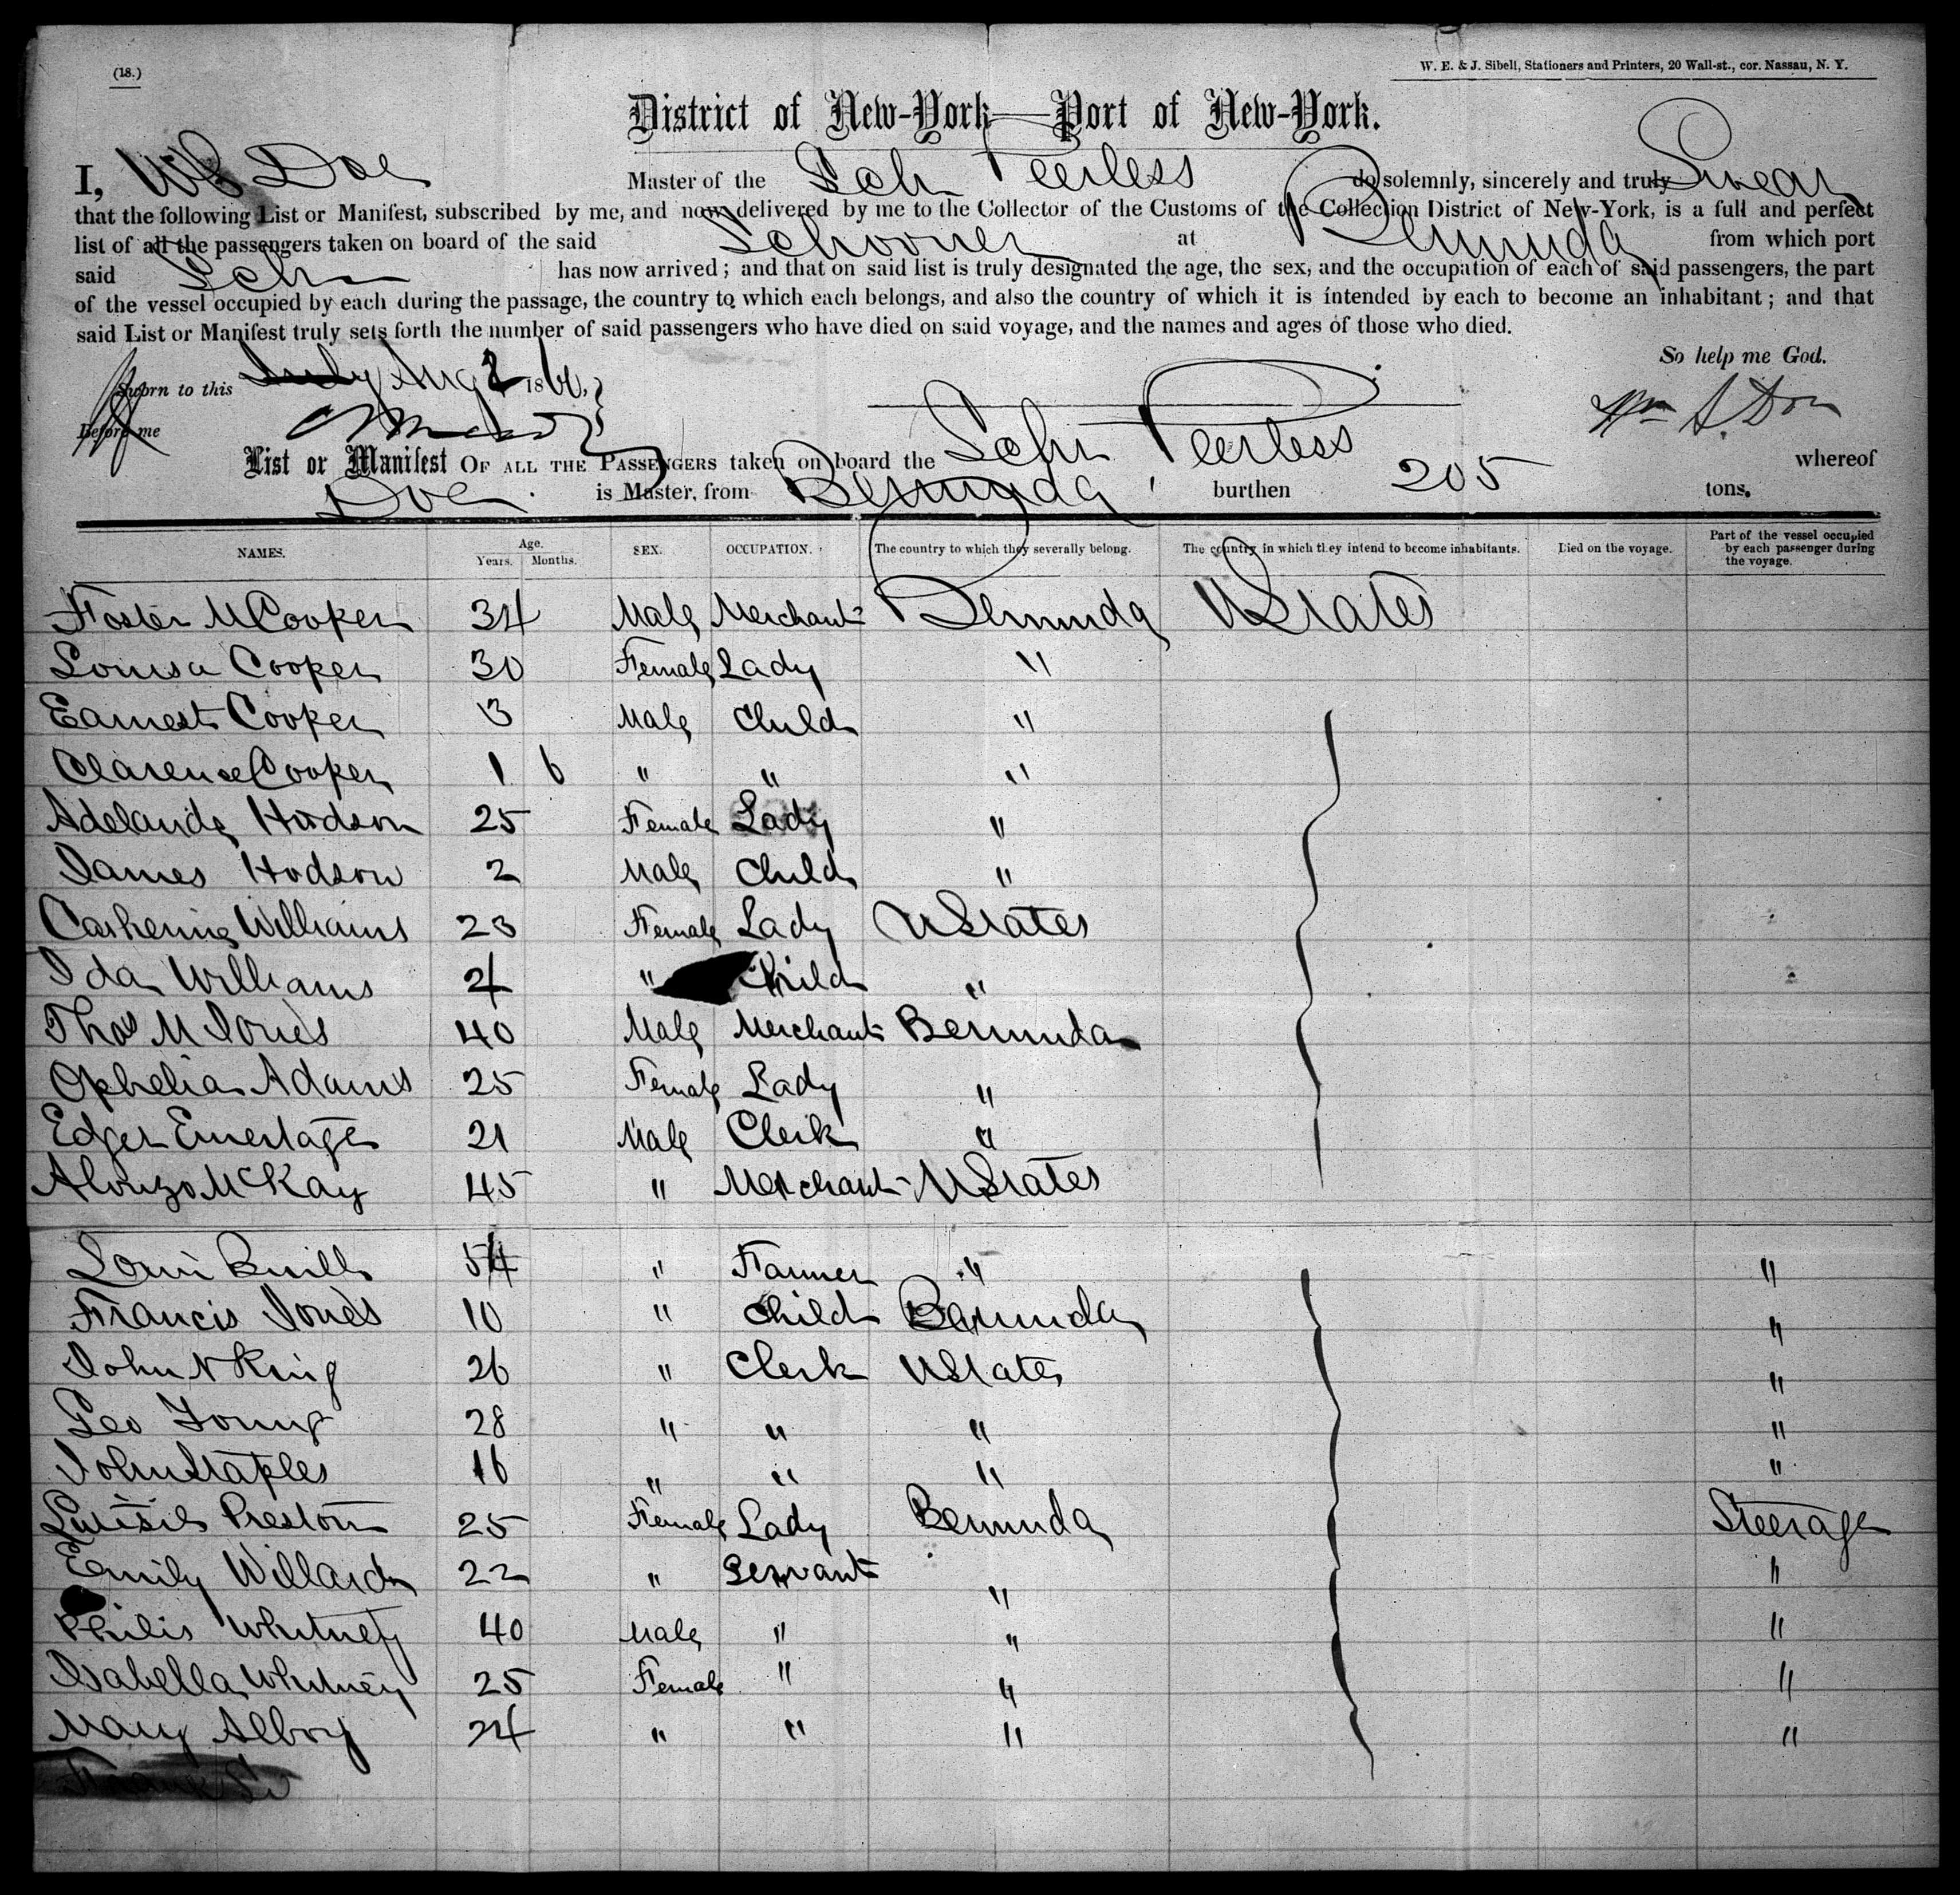 (18.)
W. E. & J. Sibell, Stationers and Printers, 20 Wall-st., cor. Nassau, N. Y.
District of New-York—Port of New-York.
I, Doe Master of the Schr Peerless do solemnly, sincerely and truly Swear
that the following List or Manifest, subscribed by me, and now delivered by me to the Collector of the Customs of the Collection District of New-York, is a full and perfect
list of all the passengers taken on board of the said Schooner at Bermuda from which port
said Schr has now arrived; and that on said list is truly designated the age, the sex, and the occupation of each of said passengers, the part
of the vessel occupied by each during the passage, the country to which each belongs, and also the country of which it is intended by each to become an inhabitant; and that
said List or Manifest truly sets forth the number of said passengers who have died on said voyage, and the names and ages of those who died.
So help me God.
Sworn to this July Aug 2 186
Before me
Wm S. Doe
List or Manifest OF ALL THE PASSENGERS taken on board the Schr Peerless whereof
Doe is Master, from Bermuda burthen 205 tons.
NAMES. Age. Years. Months. SEX. OCCUPATION. The country to which they severally belong. The country in which they intend to become inhabitants. Died on the voyage. Part of the vessel occupied by each passenger during the voyage.
Foster M Cooper 34 Male Merchant Bermuda UStates
Louisa Cooper 30 Female Lady "
Earnest Cooper 3 Male Child "
Clarense Cooper 1 6 " " "
Adelaide Hodson 25 Female Lady "
James Hodson 2 Male Child "
Catherine Williams 23 Female Lady UStates
Ida Williams " Child "
Thos M Jones 40 Male Merchant Bermuda
Ophelia Adams 25 Female Lady "
Edger 21 Male Clerk "
Alonzo McKay 45 " Merchant UStates
54 " Farmer " "
Francis Jones 10 " Child Bermuda "
John N King 26 " Clerk UStates "
Geo Young 28 " " " "
John Staples 16 " " " "
Preston 25 Female Lady Bermuda Steerage
Emily Willard 22 " Servant " "
Philis Whitney 40 Male " " "
Isabella Whitney 25 Female " " "
Mary Alboy 24 " " " "
Frank